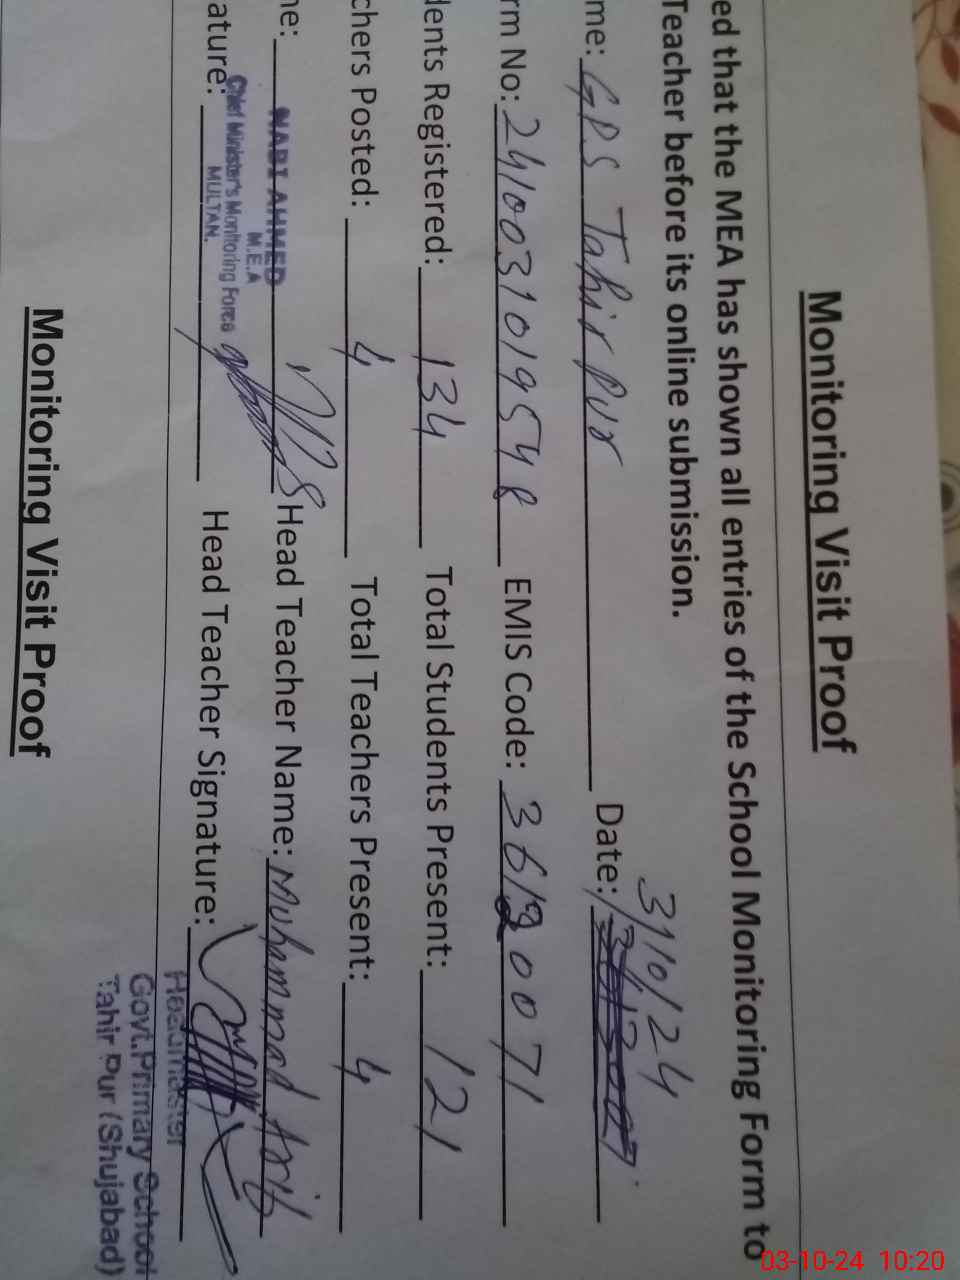 Monitoring Visit Proof
ed that the MEA has shown all entries of the School Monitoring Form to
Teacher before its online submission.
me: GPS Tahir Pur Date: 3/10/24
rm No: 2410031019548 EMIS Code: 36120071
dents Registered: 134 Total Students Present: 121
chers Posted: 4 Total Teachers Present: 4
ne: NABI AHMED Head Teacher Name: Muhammad Asif
M.E.A
Chief Minister's Monitoring Force
MULTAN.
ature: Head Teacher Signature:
Headmaster
Govt.Primary School
Tahir Pur (Shujabad)
Monitoring Visit Proof
03-10-24 10:20